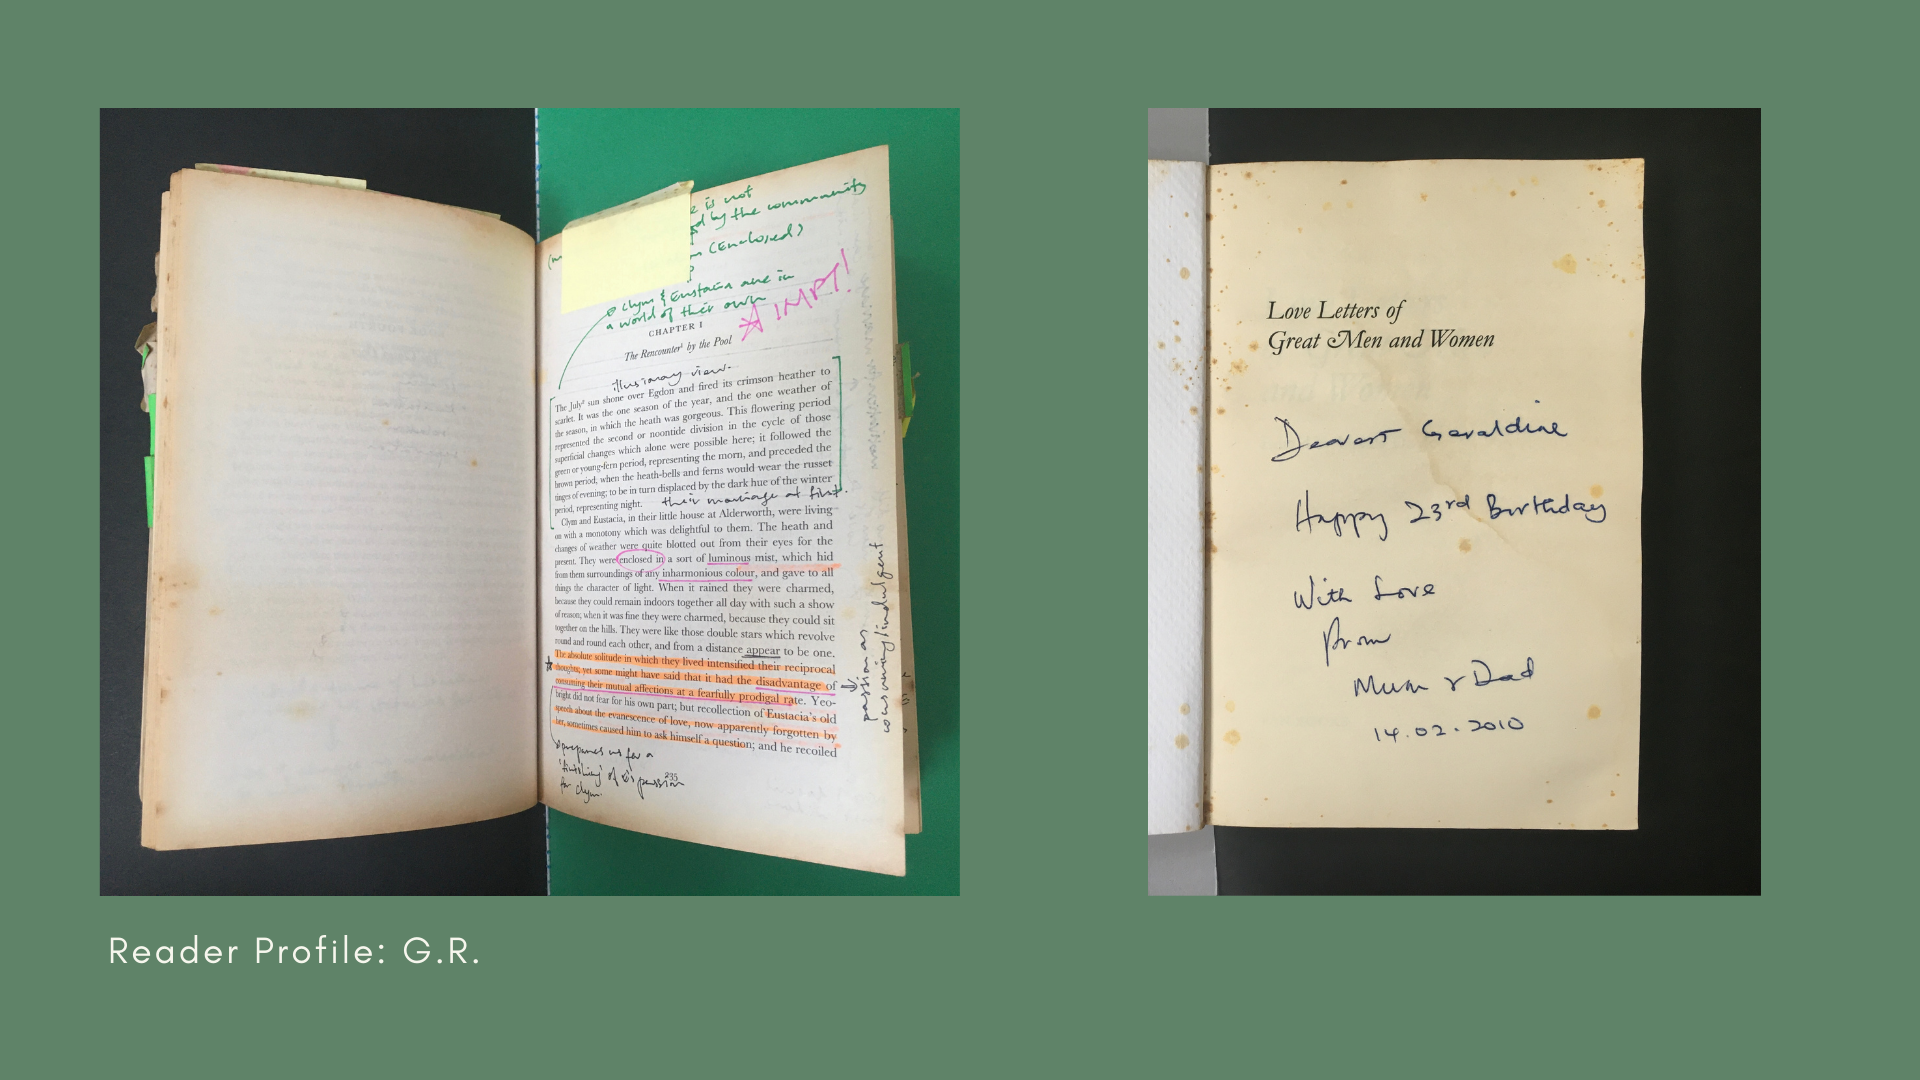 e is not
d by the community
(Enclosed)
Clym & Eustacia are in
a world of their own
IMPT!
CHAPTER I
The Rencounter¹ by the Pool
illusionary view.
The July² sun shone over Egdon and fired its crimson heather to
scarlet. It was the one season of the year, and the one weather of
the season, in which the heath was gorgeous. This flowering period
represented the second or noontide division in the cycle of those
superficial changes which alone were possible here; it followed the
green or young-fern period, representing the morn, and preceded the
brown period, when the heath-bells and ferns would wear the russet
tinges of evening; to be in turn displaced by the dark hue of the winter
period, representing night. their marriage at first.
Clym and Eustacia, in their little house at Alderworth, were living
on with a monotony which was delightful to them. The heath and
changes of weather were quite blotted out from their eyes for the
present. They were enclosed in a sort of luminous mist, which hid
from them surroundings of any inharmonious colour, and gave to all
things the character of light. When it rained they were charmed,
because they could remain indoors together all day with such a show
of reason; when it was fine they were charmed, because they could sit
together on the hills. They were like those double stars which revolve
round and round each other, and from a distance appear to be one.
The absolute solitude in which they lived intensified their reciprocal
thoughts; yet some might have said that it had the disadvantage of
consuming their mutual affections at a fearfully prodigal rate. Yeo-
bright did not fear for his own part; but recollection of Eustacia's old
speech about the evanescence of love, now apparently forgotten by
her, sometimes caused him to ask himself a question; and he recoiled
passion as
consuming/indulgent
prepares us for a
'finishing' of E's passion
for Clym.
235
Love Letters of
Great Men and Women
Dearest Geraldine
Happy 23rd Birthday
With Love
From
Mum & Dad
14.02.2010
Reader Profile: G.R.